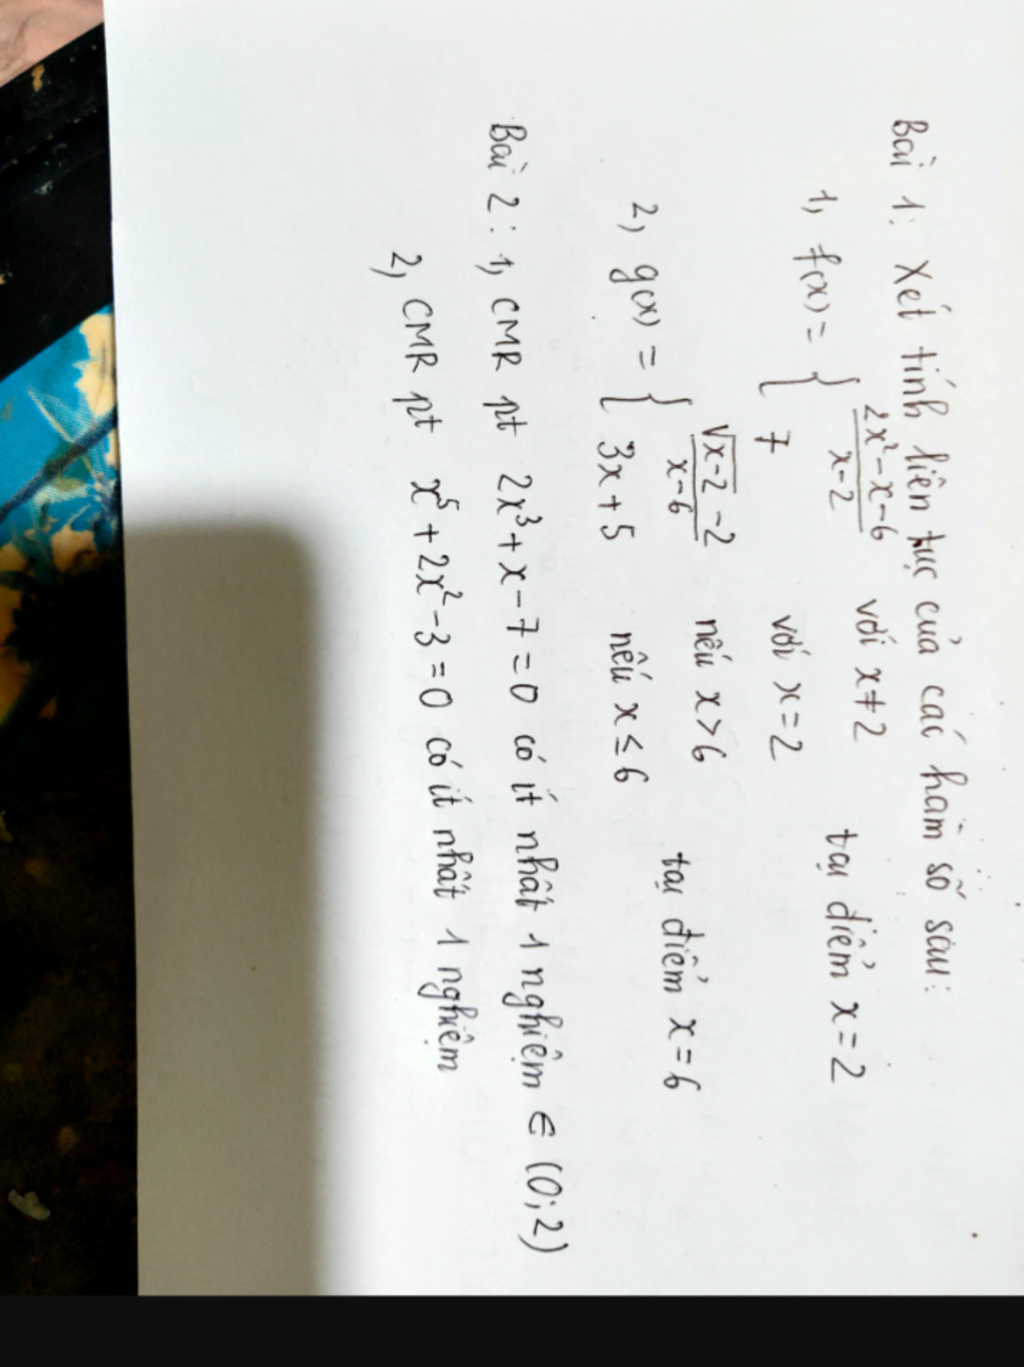 Bài 1: Xét tính liên tục của các hàm số sau:
1, f(x) = { (2x² - x - 6)/(x - 2) với x ≠ 2 tại điểm x = 2
7 với x = 2
2, g(x) = { (√(x-2) - 2)/(x - 6) nếu x > 6 tại điểm x = 6
3x + 5 nếu x ≤ 6
Bài 2: 1, CMR pt 2x³ + x - 7 = 0 có ít nhất 1 nghiệm ∈ (0; 2)
2, CMR pt x⁵ + 2x² - 3 = 0 có ít nhất 1 nghiệm